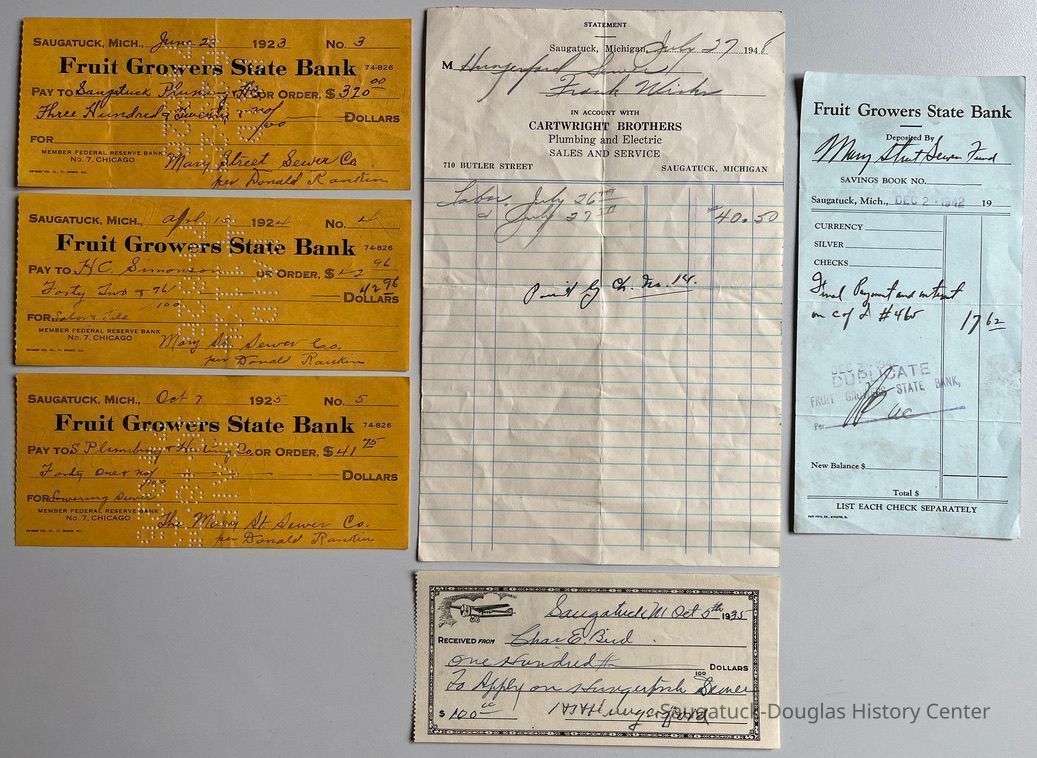 SAUGATUCK, MICH., June 23 1923 NO. 3
Fruit Growers State Bank 74-826
PAY TO Saugatuck Plumbing & H Co OR ORDER, $320 00
Three Hundred & Twenty & no/100 DOLLARS
FOR
MEMBER FEDERAL RESERVE BANK
NO. 7, CHICAGO
Mary Street Sewer Co.
per Donald Rankin
SAUGATUCK, MICH., Apr 1924 NO. 4
Fruit Growers State Bank 74-826
PAY TO H C Simonson OR ORDER, $42 96
Forty Two & 96/100 42 96 DOLLARS
FOR Labor & Tile
MEMBER FEDERAL RESERVE BANK
NO. 7, CHICAGO
Mary St. Sewer Co.
per Donald Rankin
SAUGATUCK, MICH., Oct 7 1925 NO. 5
Fruit Growers State Bank 74-826
PAY TO S Plumbing & Heating Co. OR ORDER, $41 75
Forty One & DOLLARS
FOR Lowering Sewer
MEMBER FEDERAL RESERVE BANK
NO. 7, CHICAGO
The Mary St Sewer Co.
per Donald Rankin
STATEMENT
Saugatuck, Michigan, July 27 194
M Hungerford Sewer
Frank Wicks
IN ACCOUNT WITH
CARTWRIGHT BROTHERS
Plumbing and Electric
SALES AND SERVICE
710 BUTLER STREET SAUGATUCK, MICHIGAN
Labor July 26
July 27 40.50
Paid by Ch. No. 14.
Saugatuck M Oct 5th 1935
RECEIVED FROM Chas E. Bird
One Hundred DOLLARS
100
To Apply on Sewer
$ 100 00 Hungerford
Fruit Growers State Bank
Deposited By
Mary Street Sewer Fund
SAVINGS BOOK NO.
Saugatuck, Mich., DEC 2 - 1942 19
CURRENCY
SILVER
CHECKS
Final Payment and interest
on C of D #465 17 62
DUPLICATE
FRUIT GROWERS STATE BANK,
Per
New Balance $
Total $
LIST EACH CHECK SEPARATELY
Saugatuck-Douglas History Center